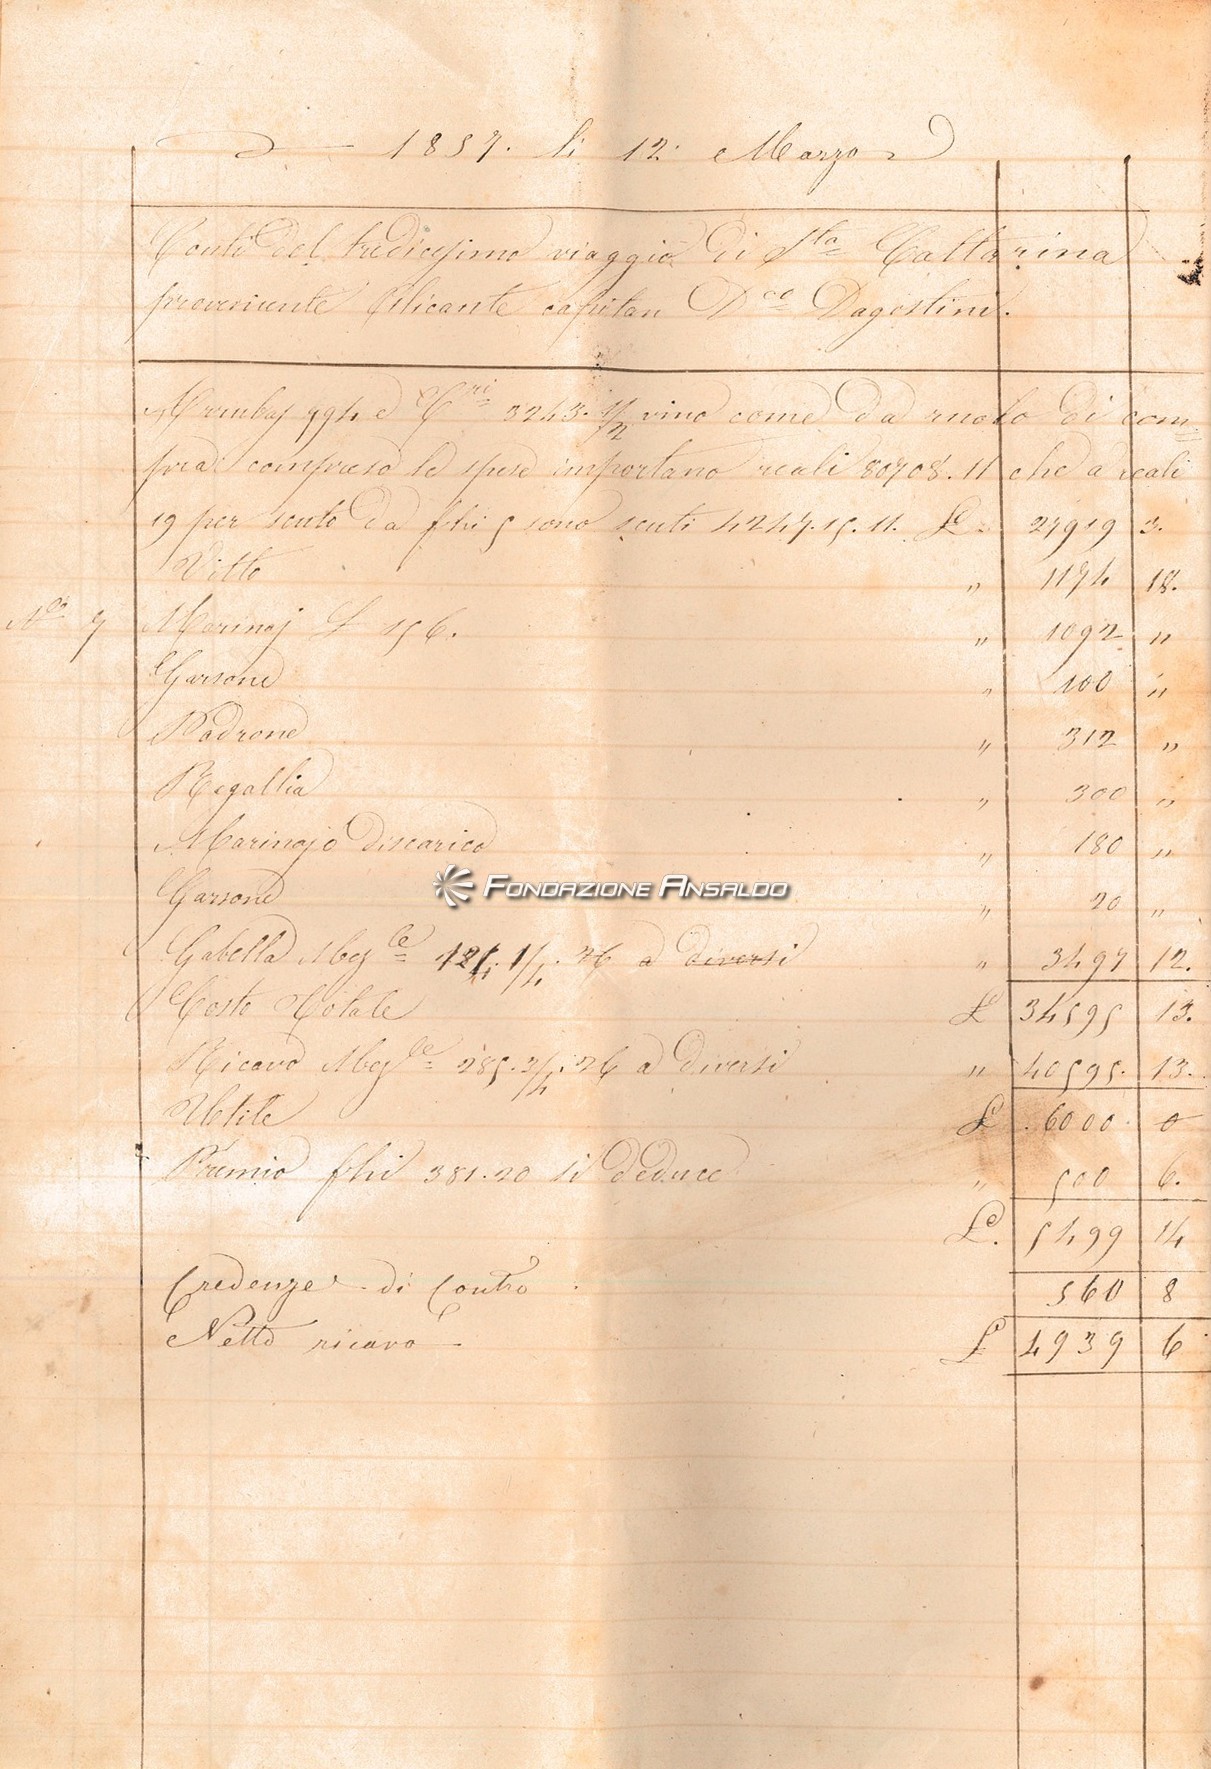 1857. li 12. Marzo
Conti del tredicesimo viaggio di Sta Cattarina
proveniente Alicante capitan Dco Dagostini.
994 e Cri 3243. 1/2 vino come da ruolo di com
pra compreso le spese importano reali 80708. 11 che a reali
19 per scuto da fhi 5 sono scuti 4247.15.11. £ 27919 3.
Vitto " 1174 18.
No 7 Marinaj £ 156. " 1092 "
Garsone " 100 "
Padrone " 312 "
Regallia " 300 "
Marinajo discarico " 180 "
Garsone " 20 "
Gabella 1/4. 26 a diversi " 3497 12.
Costo Totale £ 34595 13.
Ricavo 285. 2/4. 26 a diversi " 40595. 13.
Utile £ 6000. 0
Premio fhi 381.20 si deduce " 500 6.
£. 5499 14
Credenze di Contro 560 8
Netto ricavo £ 4939 6
FONDAZIONE ANSALDO